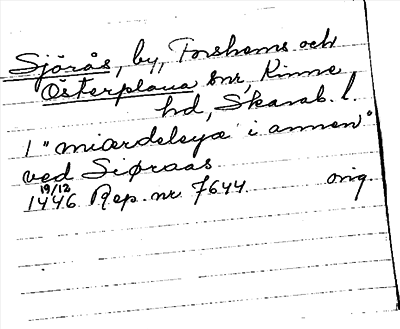 Sjörås, by, Forshems och
Österplana snr, Kinne
hd, Skarab. l.
1 "miærdeleyæ i annen"
ved Siøraas
19/12
1446 Rep. nr 7644 orig.